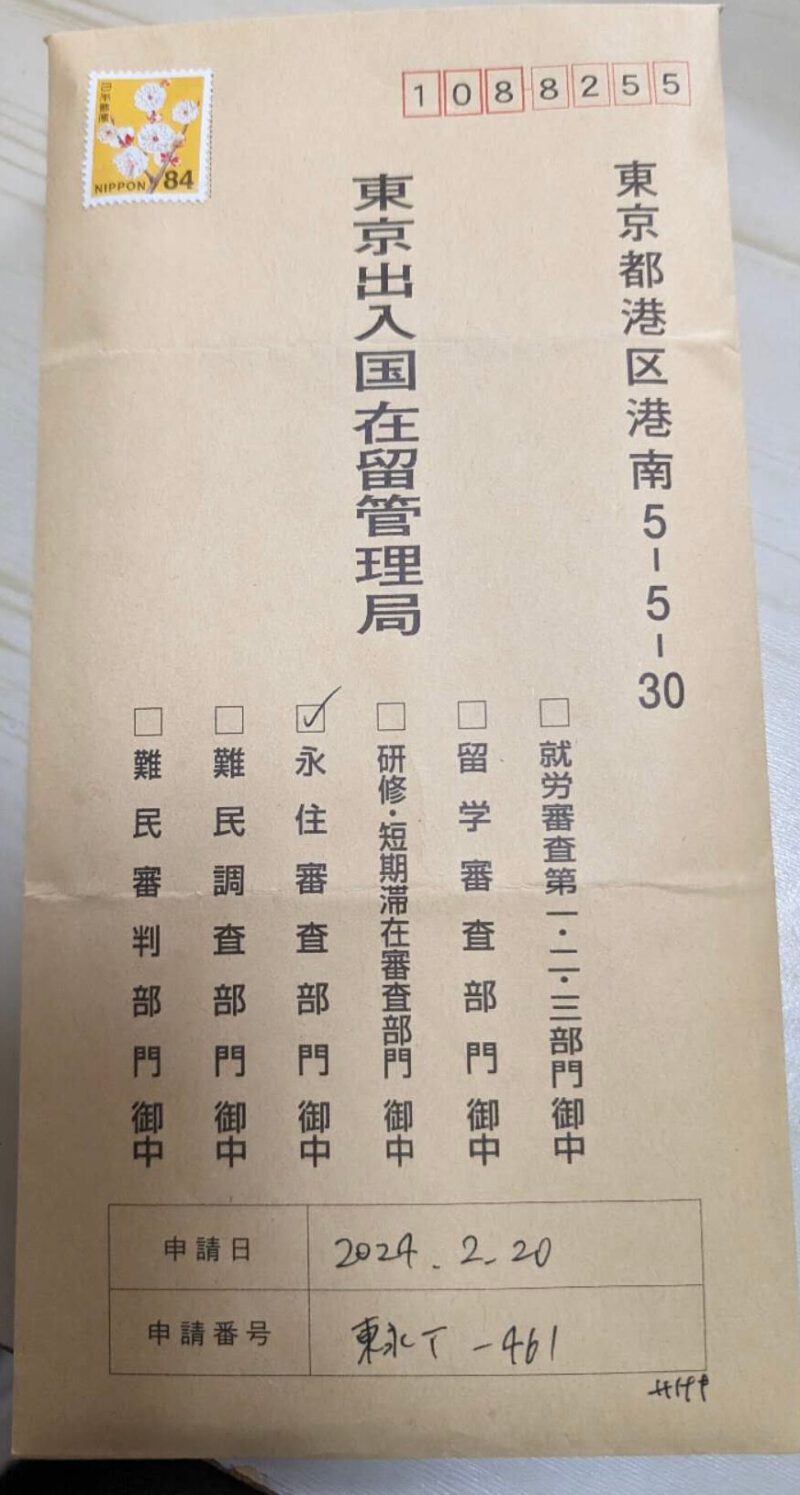 日本郵便
NIPPON 84
1088255
東京都港区港南5-5-30
東京出入国在留管理局
□就労審査第一・二・三部門 御中
□留学審査部門 御中
□研修・短期滞在審査部門 御中
☑永住審査部門 御中
□難民調査部門 御中
□難民審判部門 御中
申請日 2024.2.20
申請番号 東永T-461